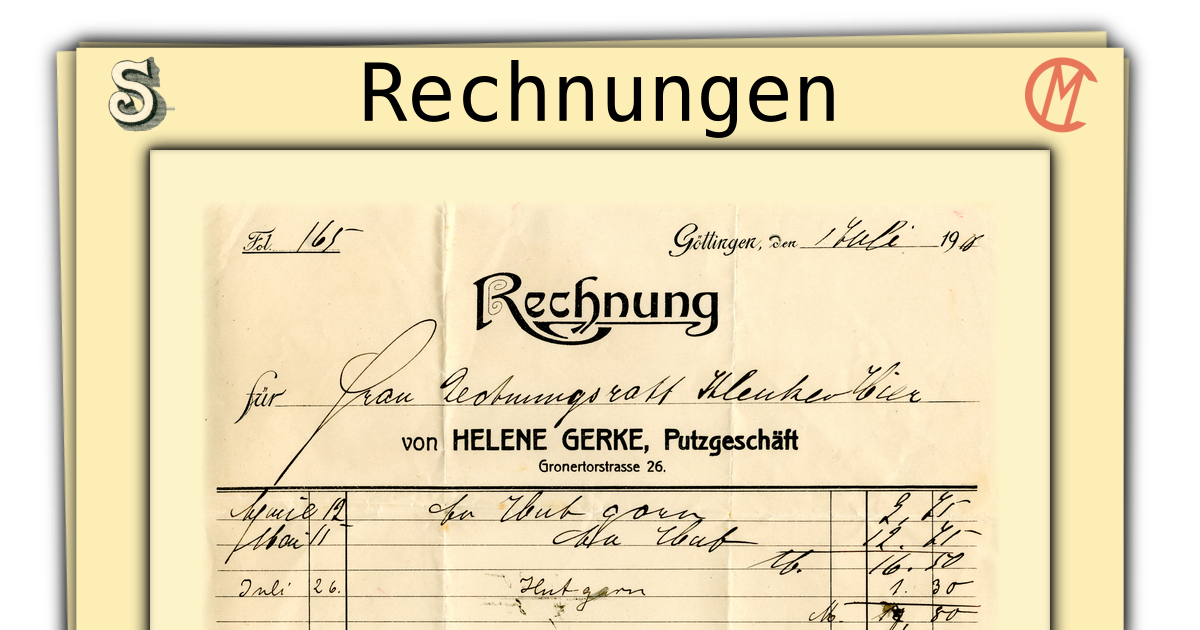 S Rechnungen CM
Fol. 165 Göttingen, den 1 Juli 19
Rechnung
für Frau Rechnungsrath Klenker Hier
von HELENE GERKE, Putzgeschäft
Gronertorstrasse 26.
April 12 Hut garn
Mai 11 Hut 12. 75
M. 16. 50
Juli 26. Hut garn 1. 30
M. 80